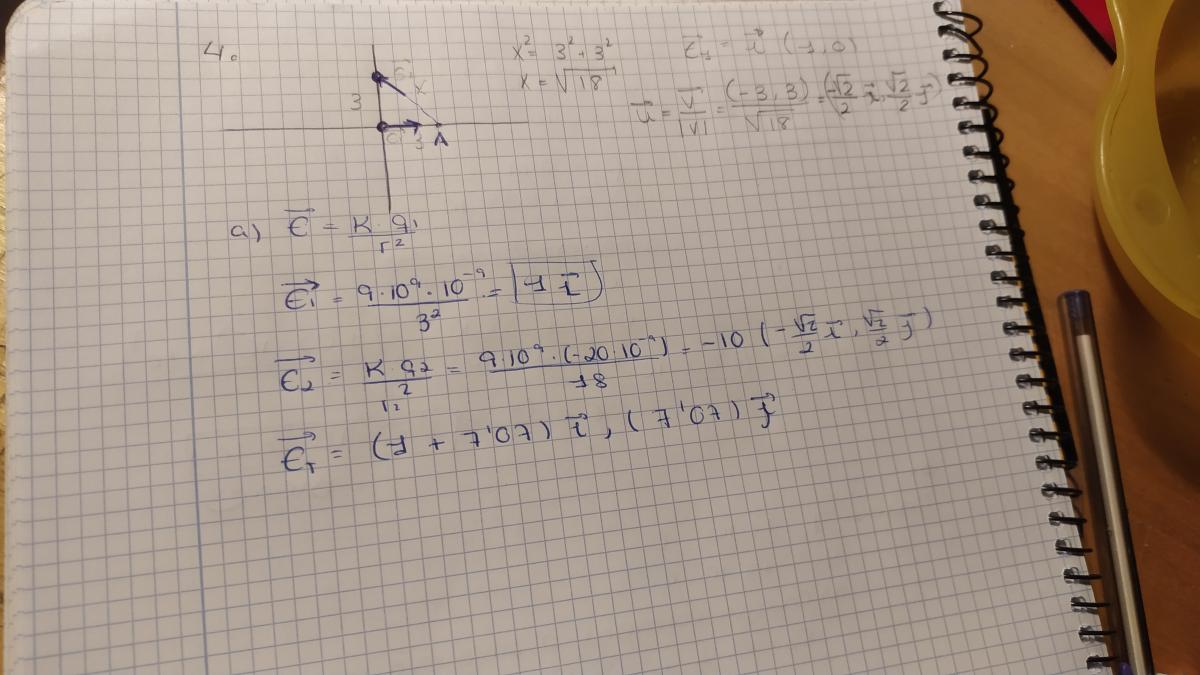 4.
3
x
3 A
x² = 3² + 3²
x = √18
ε₁ = i (1,0)
u = v/|v| = (-3, 3)/√18 = (-√2/2 i, √2/2 j)
a) ε = K·q₁/r²
ε₁ = 9·10⁹·10⁻⁹/3² = 1 i
ε₂ = K·q₂/r₂² = 9·10⁹·(-20·10⁻⁹)/18 = -10 (-√2/2 i, √2/2 j)
ε_T = (1 + 7,07) i, (7,07) j